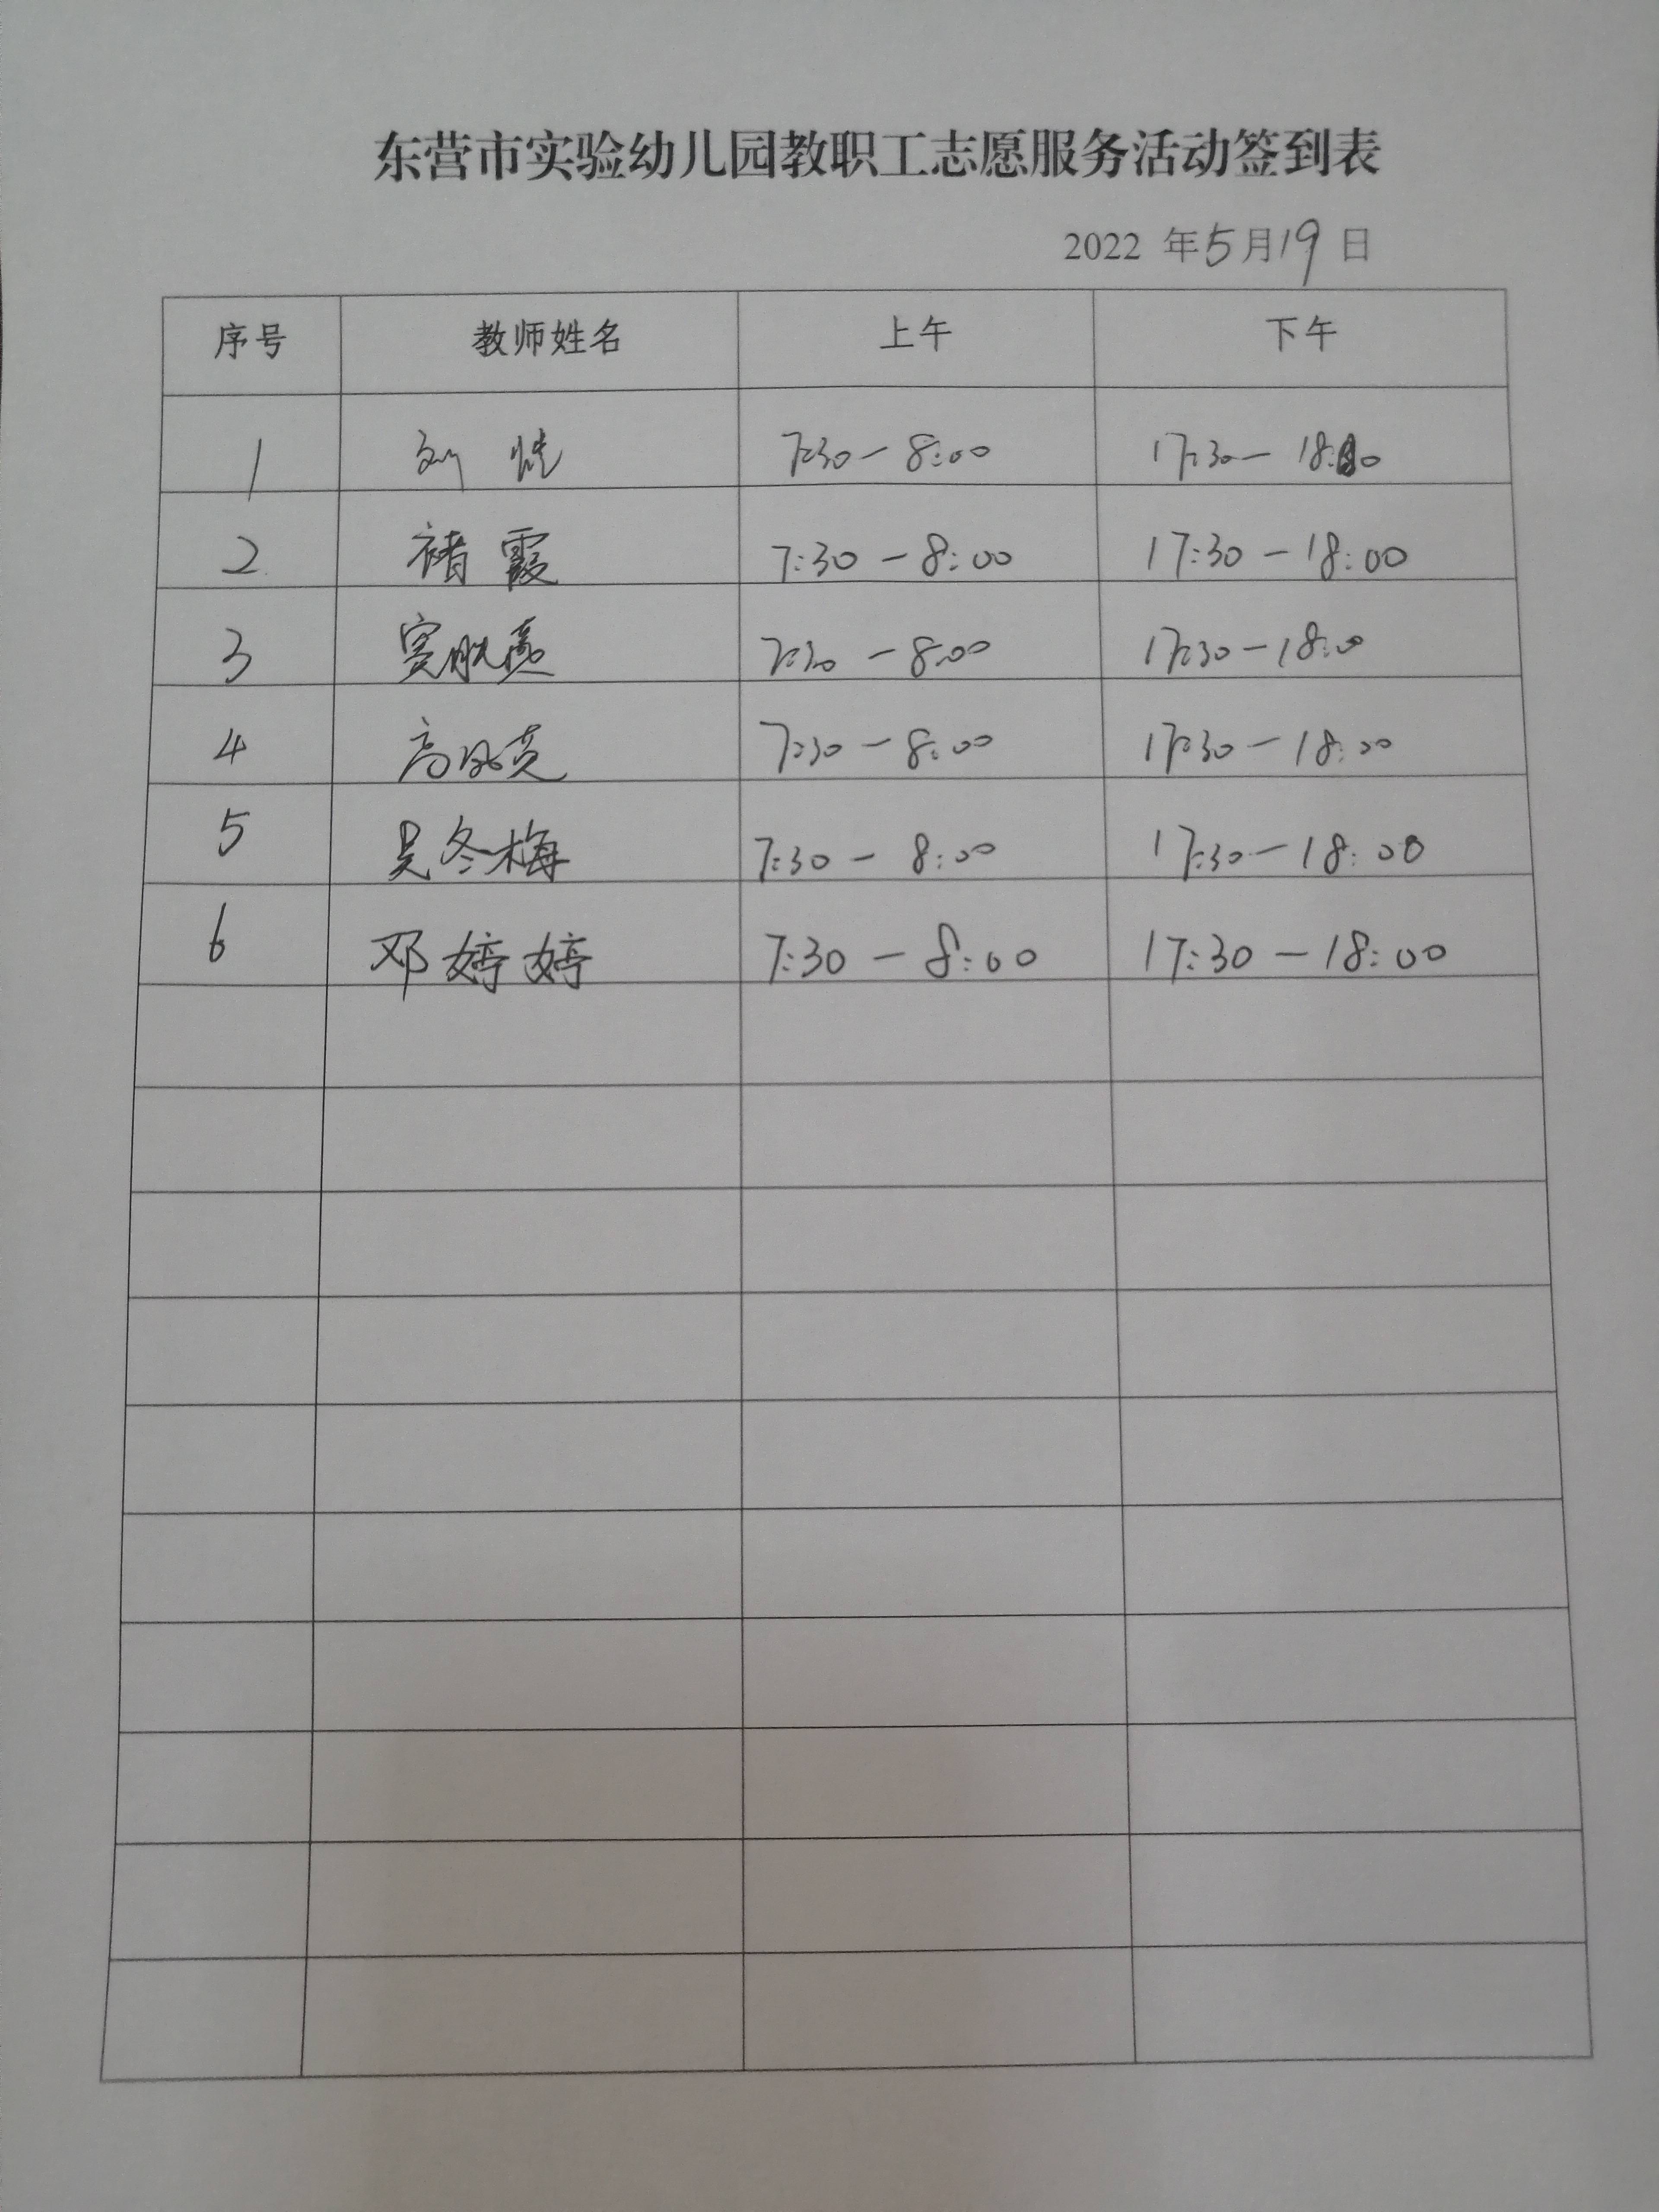 东营市实验幼儿园教职工志愿服务活动签到表
2022 年5月19日
序号 教师姓名 上午 下午
1 刘 7:30-8:00 17:30-18:00
2 褚霞 7:30-8:00 17:30-18:00
3 7:30-8:00 17:30-18:00
4 高 7:30-8:00 17:30-18:00
5 吴冬梅 7:30-8:00 17:30-18:00
6 邓婷婷 7:30-8:00 17:30-18:00